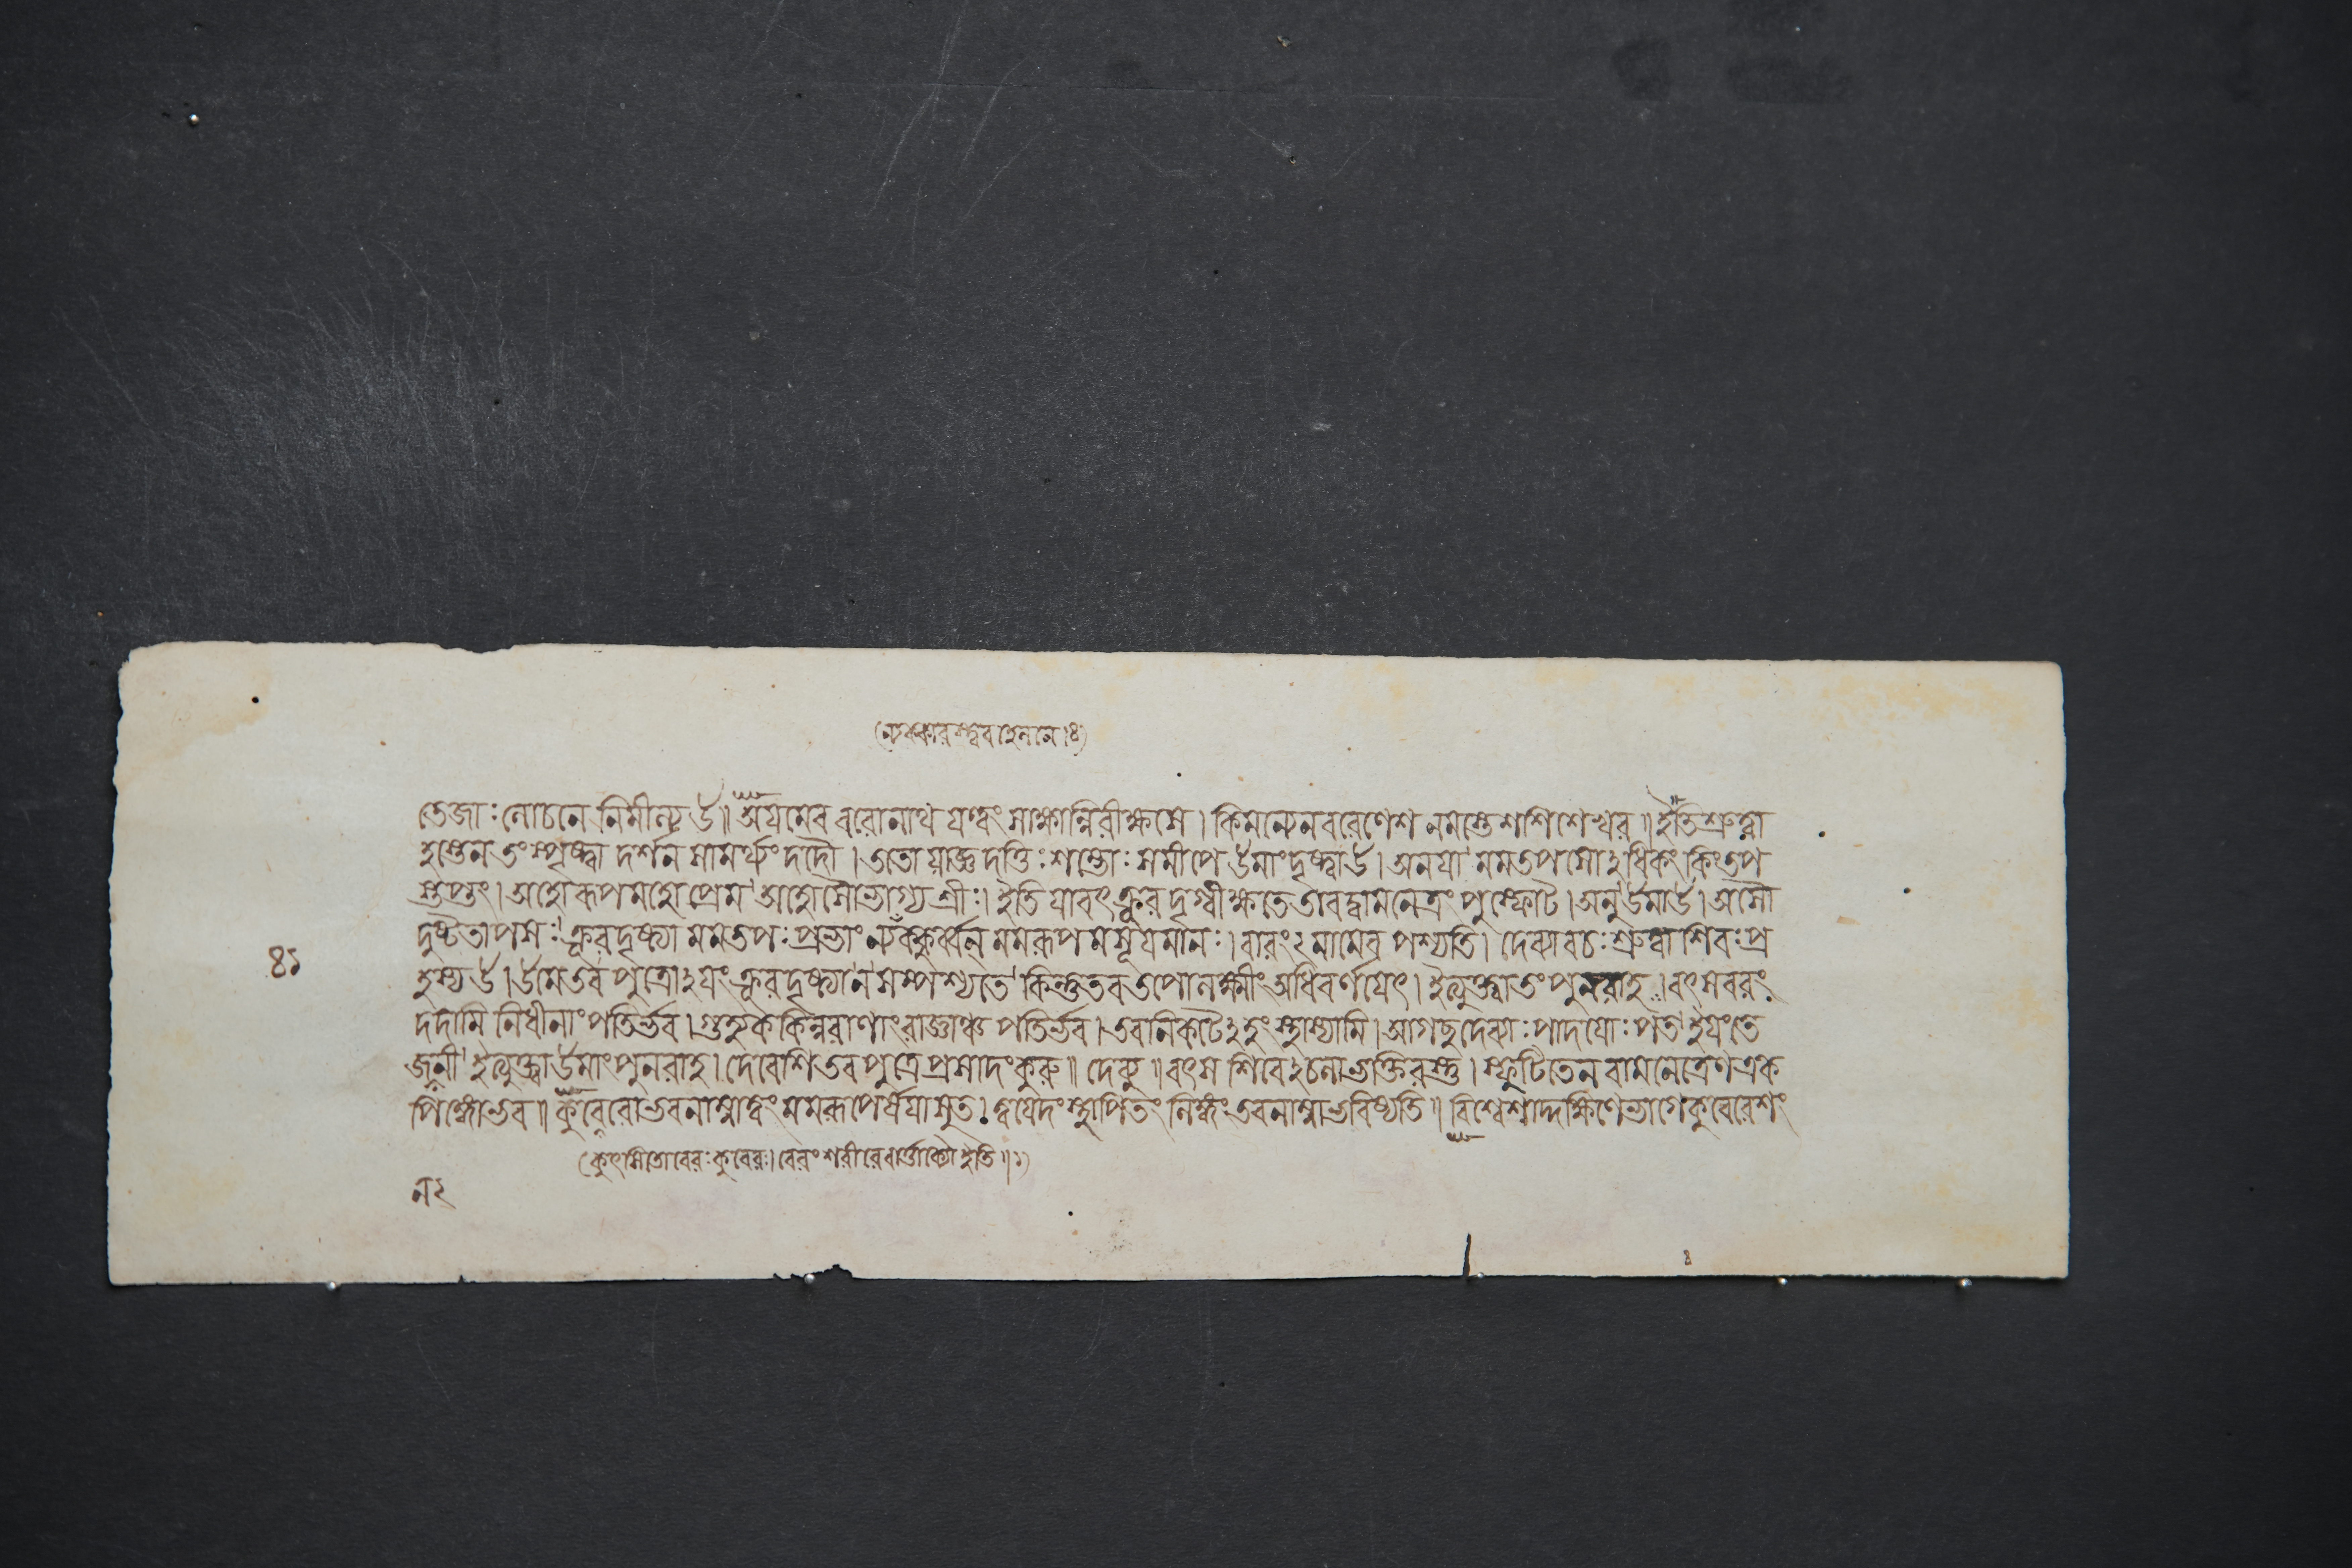 (ন্যক্কারস্ত্ববহেলনে।৪)
তেজাঃ লোচনে নিমীল্য উ॥ অয়মেব বরোনাথ যত্ত্বং সাক্ষান্নিরীক্ষসে। কিমন্যেনবরেণেশ নমস্তেশশিশেখর॥ ইতিশ্রুত্বা
হস্তেন তং স্পৃষ্ট্বা দর্শন সামর্থ্যং দদৌ। ততো যাজ্ঞদত্তিঃ শম্ভোঃ সমীপে উমাং দৃষ্ট্বা উ। অনয়া মমতপসোঽধিকং কিংতপ
স্তপ্তং। অহোরূপমহোপ্রেম অহোসৌভাগ্যশ্রীঃ। ইতি যাবৎ ক্রূরদৃগ্বীক্ষতে তাবদ্বামনেত্রং পুস্ফোট। অনু উমা উ। অসৌ
দুষ্টতাপসঃ ক্রূরদৃষ্ট্যা মমতপঃপ্রভাং ন্যক্কুর্ব্বন্ মমরূপমসূয়মানঃ। বারং২ মামেব পশ্যতি। দেব্যাবচঃ শ্রুত্বা শিবঃ প্র
৪১
হস্য উ। উমে তব পুত্রোঽয়ং ক্রূরদৃষ্ট্যা ন সম্পশ্যতে কিন্তু তব তপোলক্ষ্মীং অধিবর্ণয়েৎ। ইত্যুক্ত্বা তং পুনরাহ। বৎস বরং
দদামি নিধীনাং পতির্ভব। গুহ্যক কিন্নরাণাং রাজ্ঞাঞ্চ পতির্ভব। তবনিকটেঽহং স্থাস্যামি। আগচ্ছ দেব্যাঃ পাদয়োঃ পত ইয়ং তে
জননী ইত্যুক্ত্বা উমাং পুনরাহ। দেবেশি তব পুত্রে প্রসাদং কুরু॥ দেব্যু॥ বৎস শিবেঽচলা ভক্তিরস্তু। স্ফুটিতেন বামনেত্রেণ এক
পিঙ্গো ভব॥ কুবেরো ভব নাম্না ত্বং মমরূপের্ষয়া সুত। ত্বয়েদং স্থাপিতং লিঙ্গং তব নাম্না ভবিষ্যতি॥ বিশ্বেশাদ্দক্ষিণে ভাগে কুবেরেশং
(কুৎসিতোবেরঃ কুবেরঃ। বেরং শরীরে ইতি॥১)